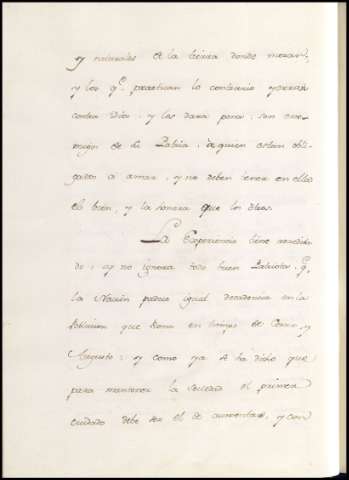 y naturales de la tierra donde moran,
y los q.e practican lo contrario yerran
contra Dios, y las dara pena, son ene-
migos de la Patria, a quien estan obli-
gados a amar, y no deben tener en ellos
el bien, y la honora que los otros.
La Experiencia tiene
do, ay no ignora todo buen Patriota, q.e
la Nacion padece igual decadencia en la
que Roma en tiempo de Cesar, y
Augusto: y como ya se ha dicho que
para mantener la Sociedad el primer
cuidado debe ser el de aumentar, y con